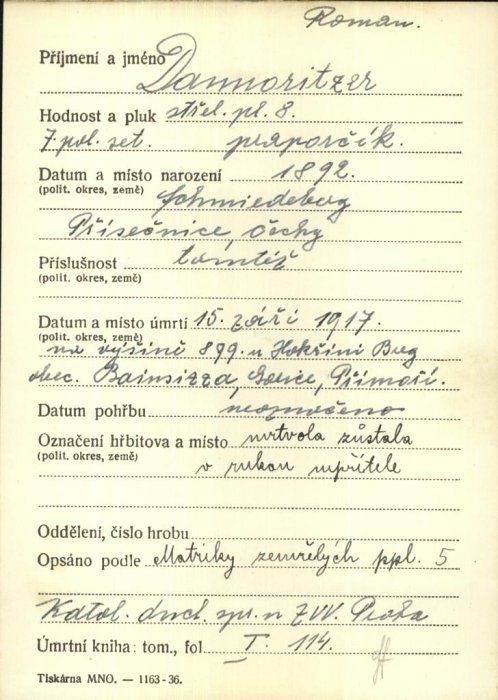 Roman.
Příjmení a jméno Dannoritzer
Hodnost a pluk střel. pl. 8.
7. pol. set. praporčík.
Datum a místo narození 1892.
(polit. okres, země) Schmiedeberg
Přísečnice, Čechy
Příslušnost tamtéž
(polit. okres, země)
Datum a místo úmrtí 15. září 1917.
(polit. okres, země)
na výšině 899. u Hokřini Breg
obec. Bainsizza, Gorice, Přímoří.
Datum pohřbu neoznačeno
Označení hřbitova a místo mrtvola zůstala
(polit. okres, země)
v rukou nepřítele
Oddělení, číslo hrobu
Opsáno podle Matriky zemřelých ppl. 5
Katol. duch. spr. u ZVV. Praha
Úmrtní kniha: tom., fol. I. 114.
Tiskárna MNO. — 1163-36.